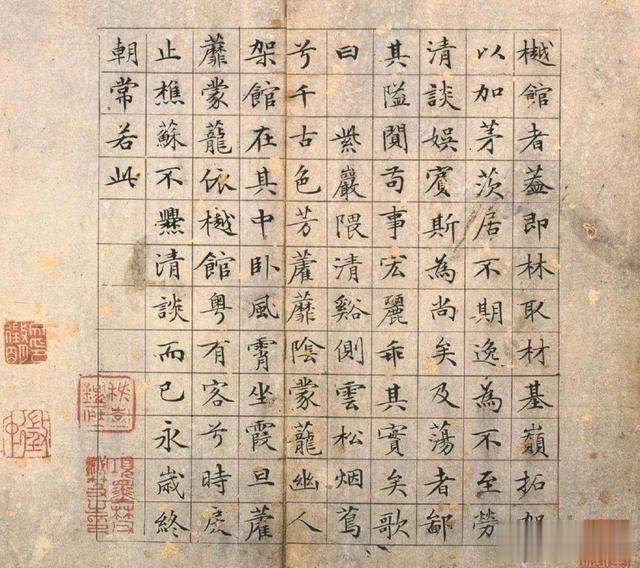 樾館者葢即林取材基嶺拓架
以加茅茨居不期逸為不至勞
清談娛賓斯為尚矣及蕩者鄙
其隘閴苟事宏麗乖其實矣歌
曰 紫巖隈清谿側雲松烟蔦
兮千古色芳藿蘼陰蒙蘢幽人
架館在其中卧風霄坐霞旦藿
蘼蒙蘢依樾館粵有客兮時戾
止樵蘇不爨清談而已永歲終
朝常若此